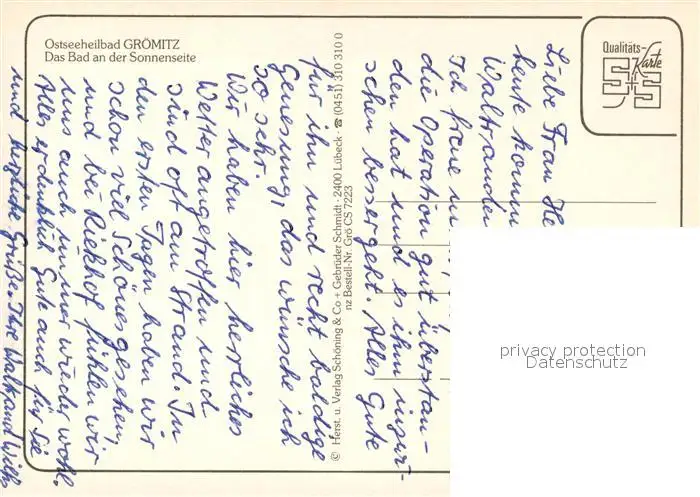 Ostseeheilbad GRÖMITZ
Das Bad an der Sonnenseite
Qualitäts-
Karte
S+S
© Herst. u. Verlag Schöning & Co + Gebrüder Schmidt · 2400 Lübeck · ☎ (0451) 310 310 0
nz Bestell-Nr. Grö CS 7223
Liebe Frau He
heute komm
Waltraude
Ich freue
die Operation gut überstan-
den hat und es ihm inzwi-
schen besser geht. Alles Gute
für ihn und recht baldige
Genesung, das wünsche ich
so sehr.
Wir haben hier herrliches
Wetter angetroffen und
sind oft am Strand. In
den ersten Tagen haben wir
schon viel Schönes gesehen,
und bei Riekhof fühlen wir
uns auch immer wieder wohl.
Alles erdenklich Gute auch für Sie
und herzliche Grüße. Ihre
privacy protection
Datenschutz